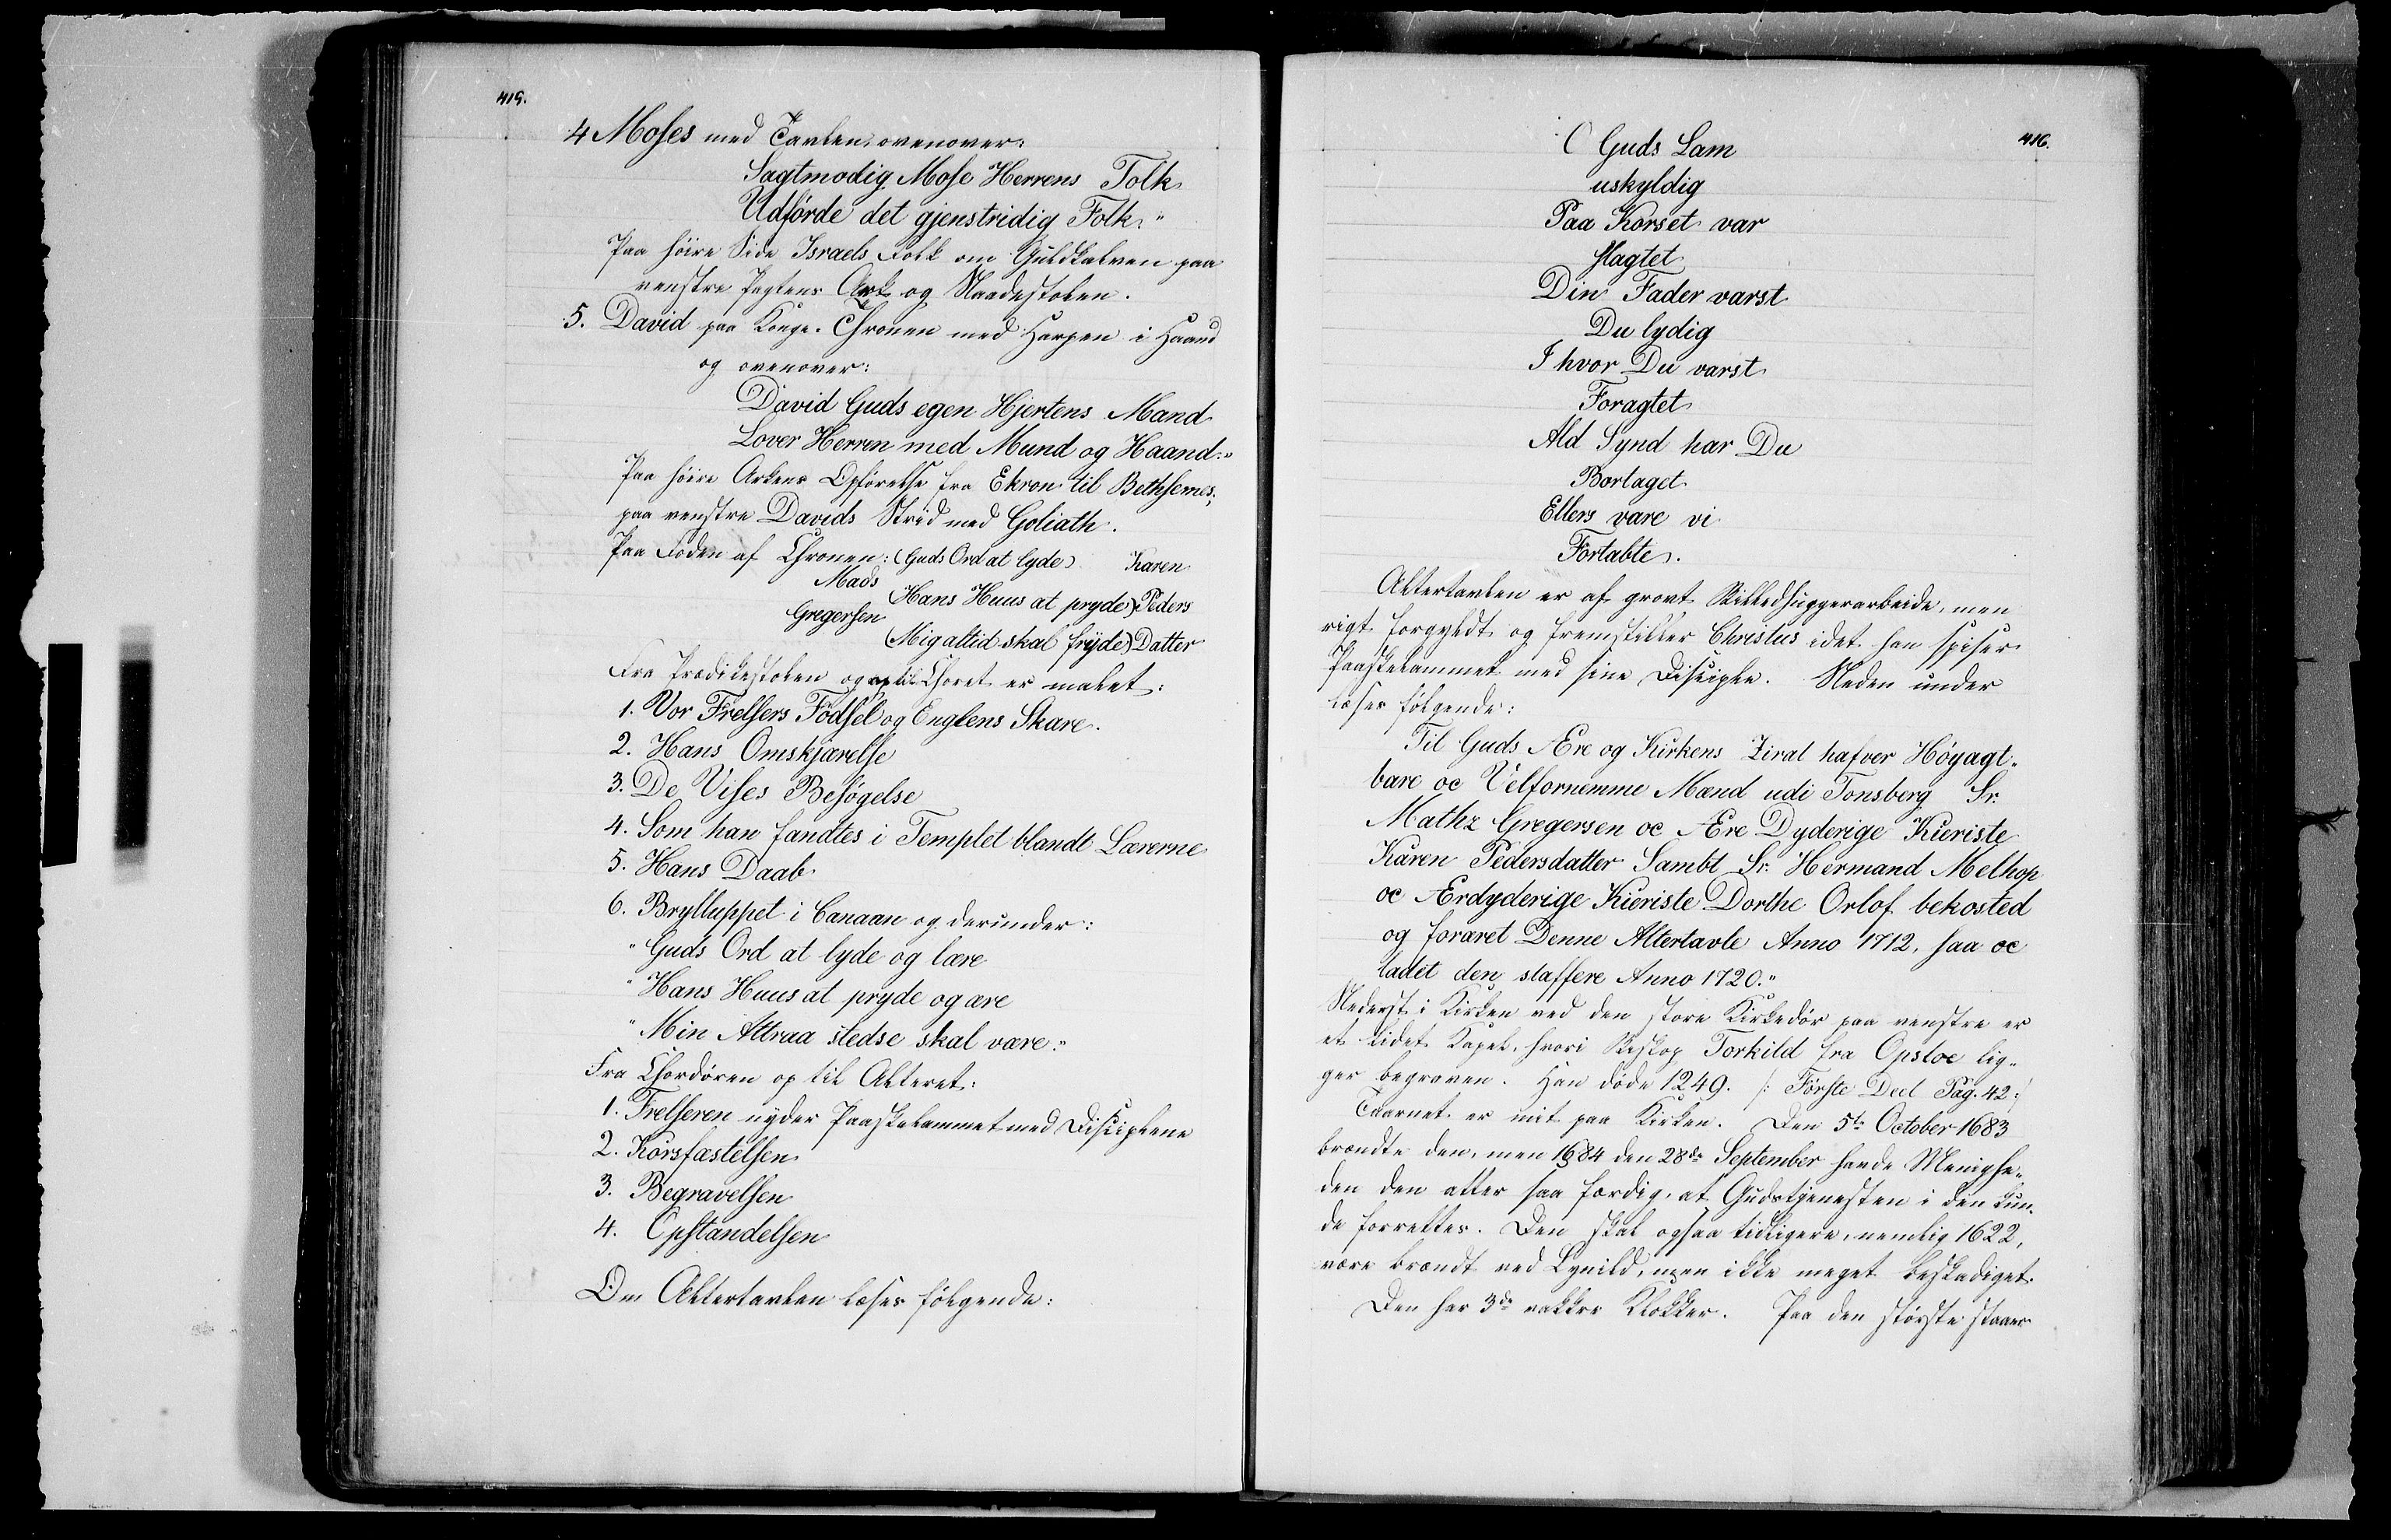 415.
4 Moses med Tavlen, ovenover:
Sagtmodig Mose Herrens Tolk
Udförde det gjenstridig Folk."
Paa høire Side Israels Folk om Guldkalven paa
venstre Pagtens Ark og Naadestolen.
5. David paa Konge-Thronen med Harpen i Haand
og ovenover:
David Guds egen Hjertens Mand
Lover Herren med Mund og Haand."
Paa høire Arkens Opførelse fra Ekron til Bethsemes;
paa venstre Davids Strid med Goliath.
Paa Foden af Thronen: (Guds Ord at lyde) Karen
Mads (Hans Huus at pryde) Peders
Gregersen (Mig altid skal frÿde) Datter
Fra Prædikestolen og op til Choret er malet:
1. Vor Frelsers Födsel og Englens Skare.
2. Hans Omskjærelse
3. De Vises Besögelse
4. Som han fandtes i Templet blandt Lærerne
5. Hans Daab
6. Brylluppet i Canaan og derunder:
"Guds Ord at lyde og lære
"Hans Huus at pryde og ære
"Min Attraa stedse skal være."
Fra Chordøren op til Alteret:
1. Frelseren nyder Paaskelammet med Disciplene
2. Korsfæstelsen
3. Begravelsen
4. Opstandelsen
Om Altertavlen læses følgende:
416.
O Guds Lam
uskyldig
Paa Korset var
slagtet
Din Fader varst
Du lydig
I hvor Du varst
Foragtet
Ald Synd har Du
Bortaget
Ellers vare vi
Fortabte.
Altertavlen er af grovt Billedhuggerarbeide, men
rigt forgyldt og fremstiller Christus idet han spiser
Paaskelammet med sine Disciple. Neden under
læses følgende:
Til Guds Ære og Kirkens Zirat hafver Høyagt-
bare oc Velfornemme Mænd udi Tonsberg Sr.
Mathz Gregersen oc Ære Dyderige Kieriste
Karen Pedersdatter Sambt Sr. Hermand Melhop
oc Ærdyderige Kieriste Dorthe Orlof bekosted
og foræret Denne Altertavle Anno 1712, saa oc
ladet den staffere Anno 1720."
Nederst i Kirken ved den store Kirkedör paa venstre er
et lidet Kapel, hvori Biskop Torkild fra Opsloe lig-
ger begraven. Han döde 1249. /: Förste Deel Pag. 42 :/
Taarnet er mit paa Kirken. Den 5te October 1683
brændte den, men 1684 den 28de September havde Menighe-
den den atter saa færdig, at Gudstjenesten i den kun-
de forrettes. Den skal ogsaa tidligere, nemlig 1622,
være brændt ved Lynild, men ikke meget beskadiget.
Den har 3de vakkre Klokker. Paa den störste staaer